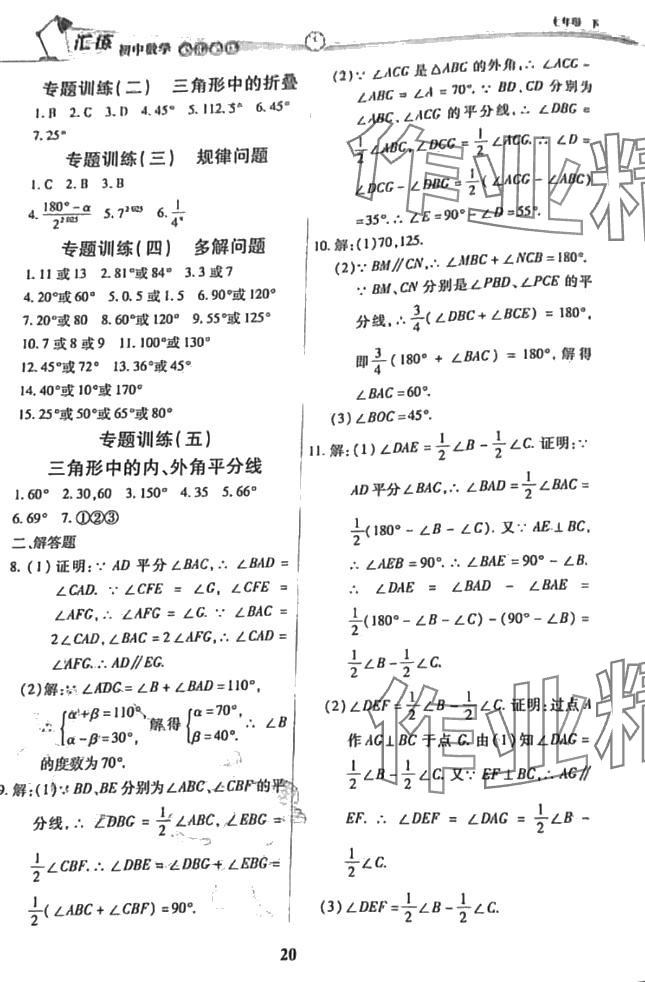 汇练 初中数学
七年级 下
专题训练(二) 三角形中的折叠
1.B 2.C 3.D 4.45° 5.112.5° 6.45°
7.25°
专题训练(三) 规律问题
1.C 2.B 3.B
4.(180°-α)/2^2025 5.7^2025 6.1/4^n
专题训练(四) 多解问题
1.11或13 2.81°或84° 3.3或7
4.20°或60° 5.0.5或1.5 6.90°或120°
7.20°或80 8.60°或120° 9.55°或125°
10.7或8或9 11.100°或130°
12.45°或72° 13.36°或45°
14.40°或10°或170°
15.25°或50°或65°或80°
专题训练(五)
三角形中的内、外角平分线
1.60° 2.30,60 3.150° 4.35 5.66°
6.69° 7.①②③
二、解答题
8.(1)证明:∵AD平分∠BAC,∴∠BAD=
∠CAD.∵∠CFE=∠G,∠CFE=
∠AFG,∴∠AFG=∠G.∵∠BAC=
2∠CAD,∠BAC=2∠AFG,∴∠CAD=
∠AFG.∴AD∥EG.
(2)解:∵∠ADC=∠B+∠BAD=110°,
∴{α+β=110°, α-β=30°, 解得{α=70°, β=40°. ∴∠B
的度数为70°.
9.解:(1)∵BD、BE分别为∠ABC、∠CBF的平
分线,∴∠DBG=1/2∠ABC,∠EBG=
1/2∠CBF.∴∠DBE=∠DBG+∠EBG=
1/2(∠ABC+∠CBF)=90°.
(2)∵∠ACG是△ABC的外角,∴∠ACG-
∠ABC=∠A=70°.∵BD、CD分别为
∠ABC、∠ACG的平分线,∴∠DBG=
1/2∠ABC,∠DCG=1/2∠ACG.∴∠D=
∠DCG-∠DBG=1/2(∠ACG-∠ABC)
=35°.∴∠E=90°-∠D=55°.
10.解:(1)70,125.
(2)∵BM∥CN,∴∠MBC+∠NCB=180°.
∵BM、CN分别是∠PBD、∠PCE的平
分线,∴3/4(∠DBC+∠BCE)=180°,
即3/4(180°+∠BAC)=180°,解得
∠BAC=60°.
(3)∠BOC=45°.
11.解:(1)∠DAE=1/2∠B-1/2∠C.证明:∵
AD平分∠BAC,∴∠BAD=1/2∠BAC=
1/2(180°-∠B-∠C).又∵AE⊥BC,
∴∠AEB=90°.∴∠BAE=90°-∠B.
∴∠DAE=∠BAD-∠BAE=
1/2(180°-∠B-∠C)-(90°-∠B)=
1/2∠B-1/2∠C.
(2)∠DEF=1/2∠B-1/2∠C.证明:过点A
作AG⊥BC于点G.由(1)知∠DAG=
1/2∠B-1/2∠C.又∵EF⊥BC,∴AG∥
EF.∴∠DEF=∠DAG=1/2∠B-
1/2∠C.
(3)∠DEF=1/2∠B-1/2∠C.
作业精
作业精
20